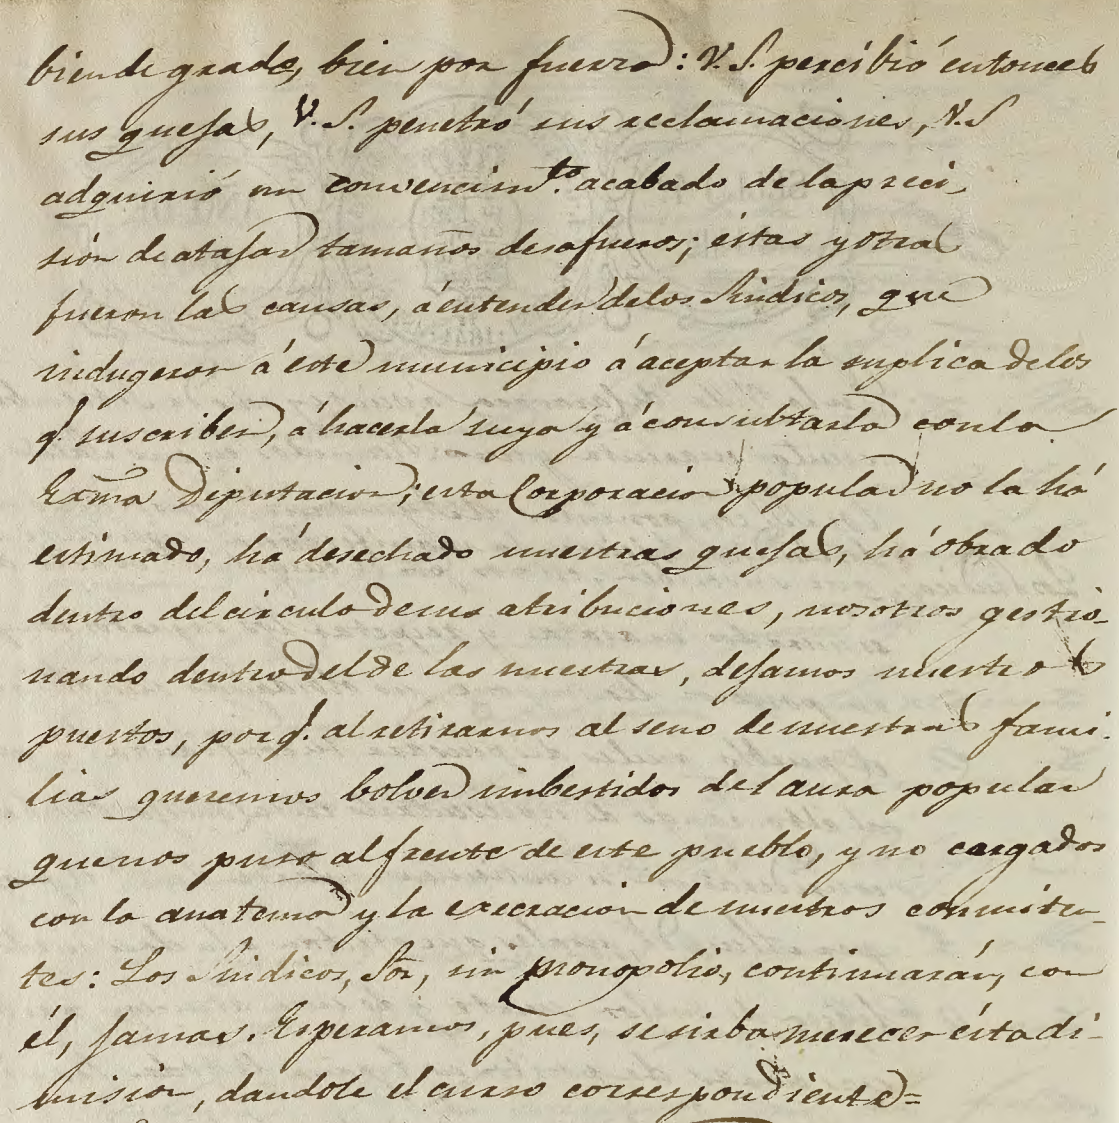 bien de grado, bien por fuerza: V. S. percibió entonces
sus quejas, V. S. penetró sus reclamaciones, V. S
adquirió un convencim.to acabado de la preci
sión de atajar tamaños desafueros; éstas y otras
fueron las causas, á entender de los Sindicos, que
indugeron á este municipio á aceptar la suplica de los
q.e suscriben, á hacerla suya y á consultarla con la
Exma Diputacion; esta Corporacion popular no la há
estimado, há desechado nuestras quejas, há obrado
dentro del circulo de sus atribuciones, nosotros gestio-
nando dentro del de las nuestras, dejamos nuestros
puestos, porq.e al retirarnos al seno de nuestras fami-
lias queremos bolver imbestidos del aura popular
que nos puso al frente de este pueblo, y no cargados
con la anatema y la execracion de nuestros comiten-
tes: Los Sindicos, Sor, sin monopolio, continuarán, con
él, jamas. Esperamos, pues, se sirba merecer ésta di-
mision, dandole el curso correspondiente=